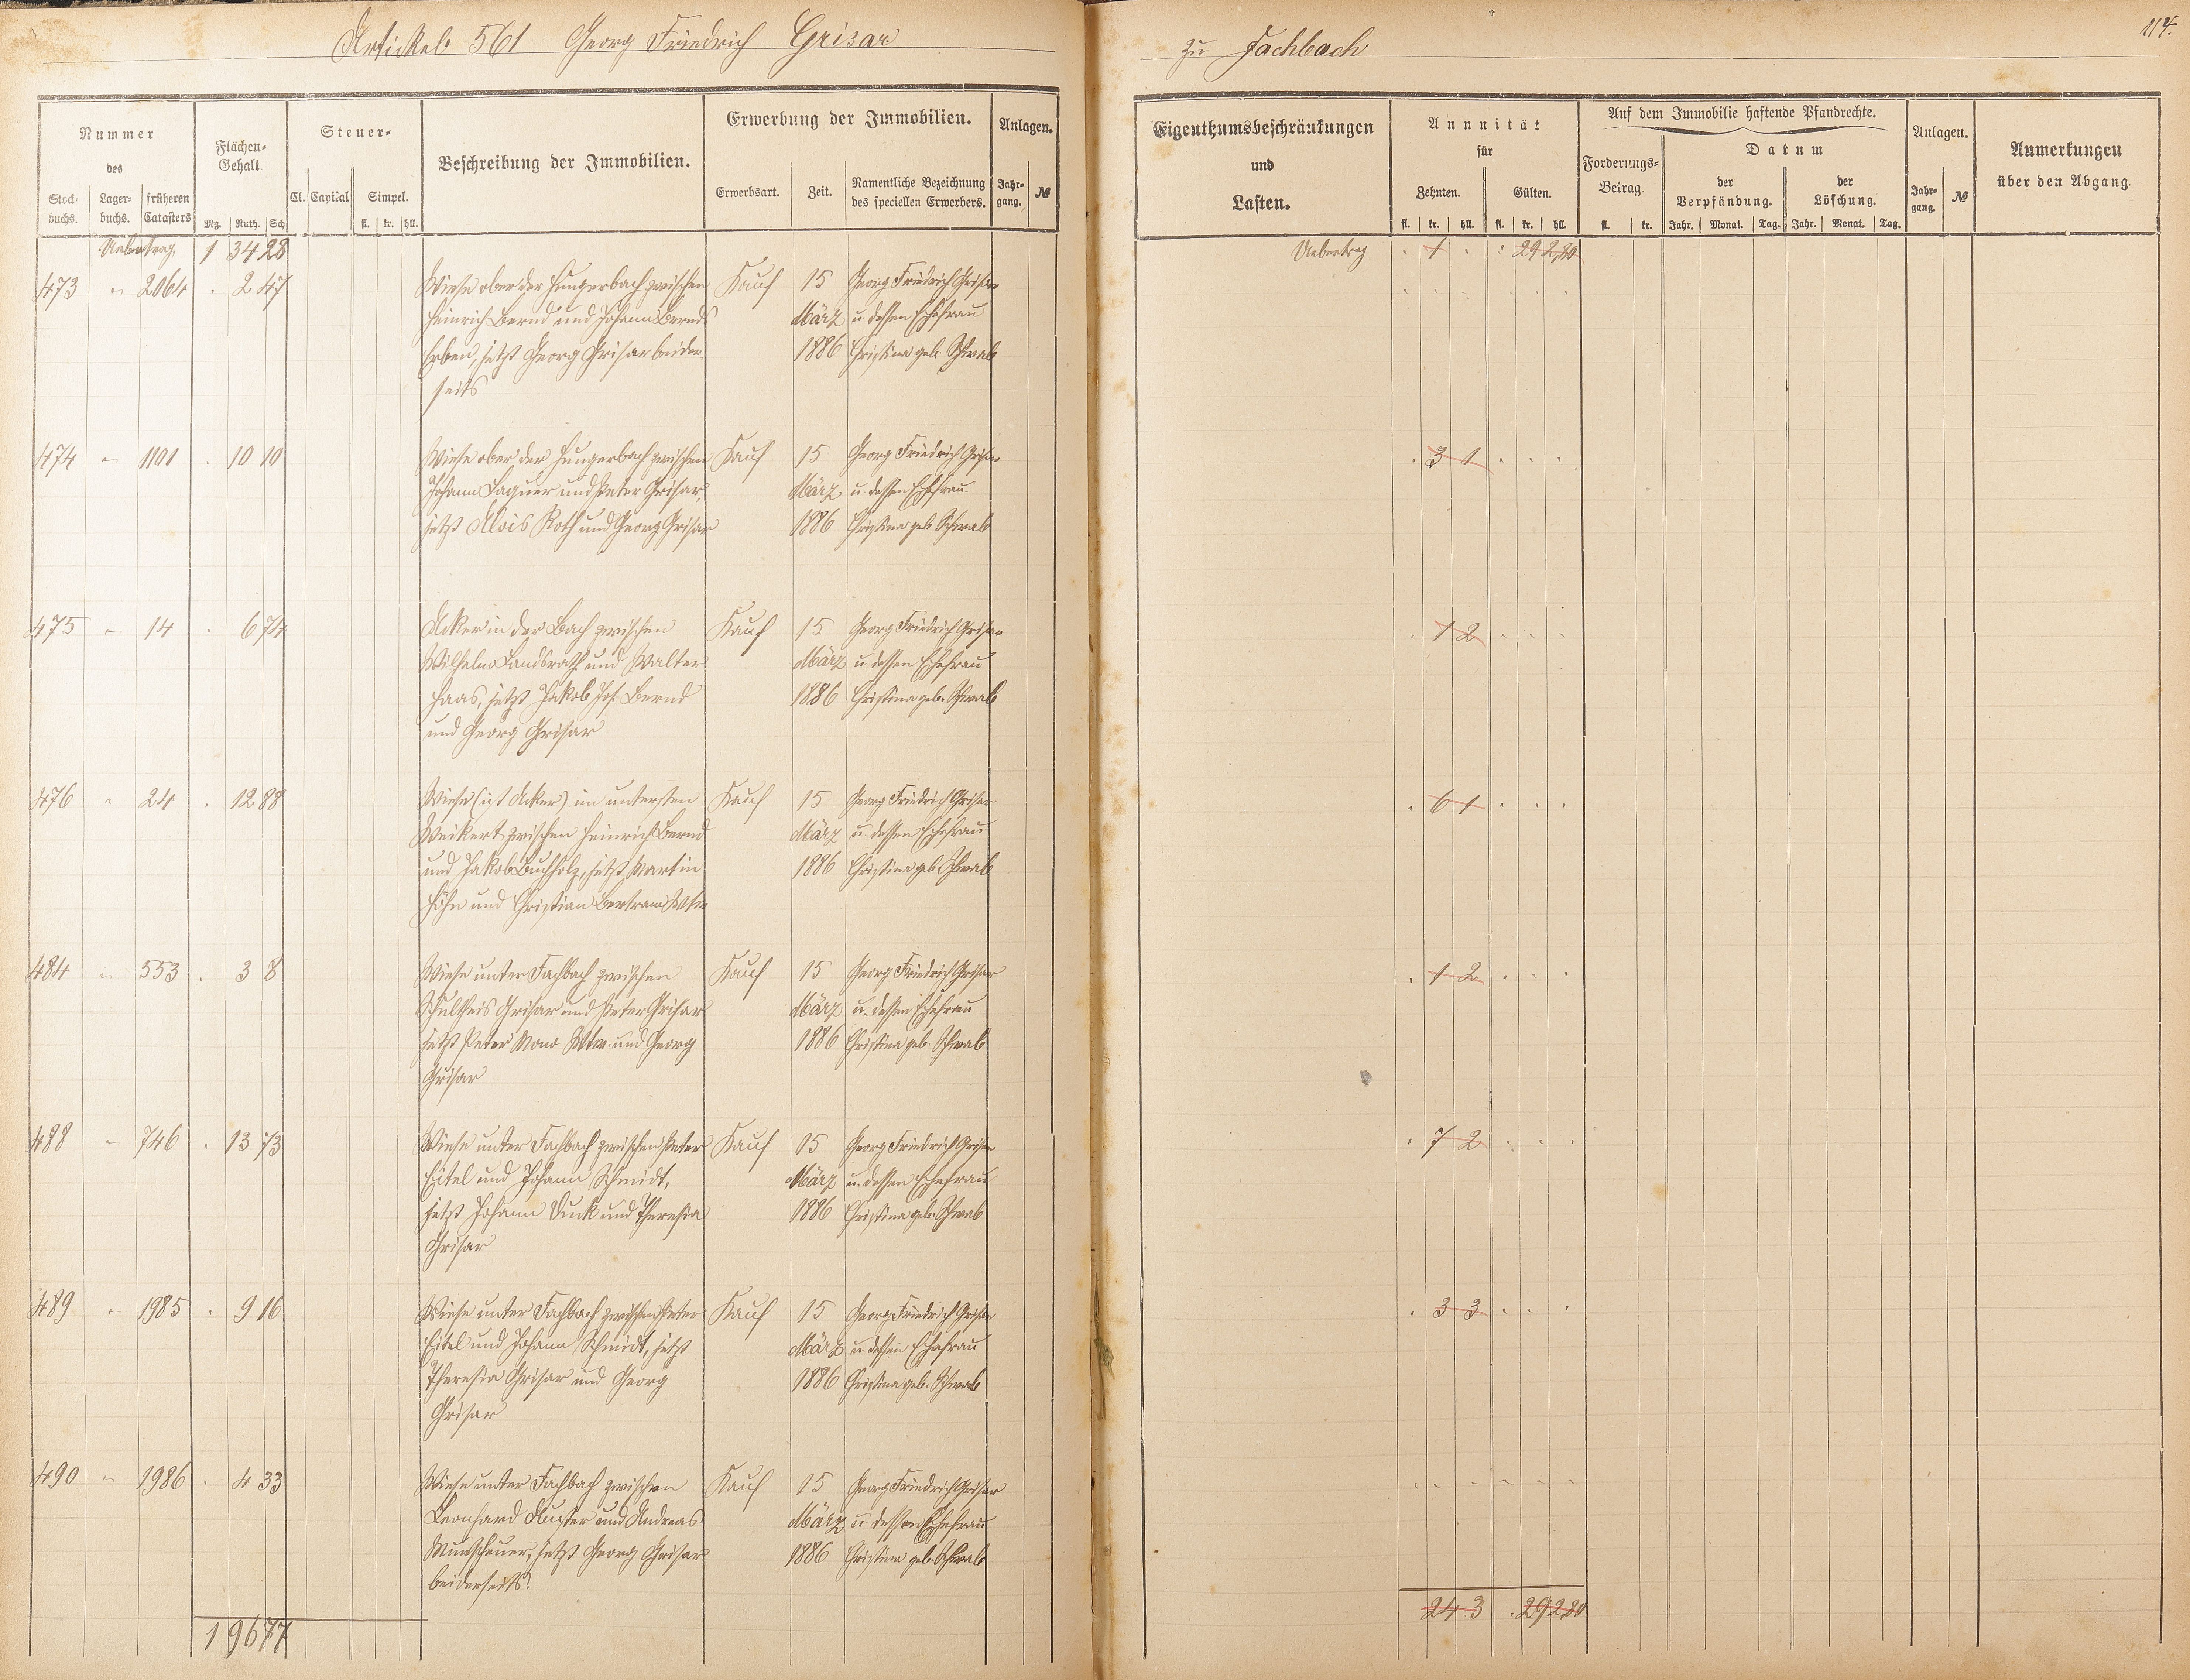 Artickel 561 Georg Friedrich Grisar
zu Fachbach
114.
Nummer
des
Stockbuchs.
Lagerbuchs.
früheren Catasters
Flächen-Gehalt.
Mg. Ruth. Sch
Steuer-
Cl. Capital Simpel.
fl. kr. hll.
Beschreibung der Immobilien.
Erwerbung der Immobilien.
Erwerbsart. Zeit. Namentliche Bezeichnung des speciellen Erwerbers.
Anlagen.
Jahrgang. №
Eigenthumsbeschränkungen
und
Lasten.
Annuität
für
Zehnten. Gülten.
fl. kr. hll. fl. kr. hll.
Auf dem Immobilie haftende Pfandrechte.
Forderungs-Betrag.
fl. kr.
Datum
der Verpfändung. der Löschung.
Jahr. Monat. Tag. Jahr. Monat. Tag.
Anlagen.
Jahrgang. №
Anmerkungen
über den Abgang.
Uebertrag 1 34 28
Uebertrag . 1 . : 29 2,80
473 " 2064 . 2 47 Wiese ober der Hungerbach zwischen Kauf 15 Georg Friedrich Grisar
Heinrich Bernd und Johann Bernds März u dessen Ehefrau
Erben, jetzt Georg Grisar beider 1886 Christina geb. Schwab
seits
474 " 1101 . 10 10 Wiese ober der Hungerbach zwischen Kauf 15 Georg Friedrich Grisar . 3 1 . . .
Johann Laquer und Peter Grisar, März u dessen Ehefrau
jetzt Alois Roth und Georg Grisar 1886 Christina geb Schwab
475 " 14 . 6 74 Acker in der Bach zwischen Kauf 15 Georg Friedrich Grisar . 1 2 . . .
Wilhelm Landsrath und Walter März u dessen Ehefrau
Haas, jetzt Jakob Jos. Bernd 1886 Christina geb. Schwab
und Georg Grisar
476 " 24 . 12 88 Wiese (ist Acker) im untersten Kauf 15 Georg Friedrich Grisar . 6 1 . . .
Weikert zwischen Heinrich Bernd März u. dessen Ehefrau
und Jakob Buchholz, jetzt Martin 1886 Christina geb Schwab
Höhn und Christian Bertram Wtw
484 " 553 . 3 8 Wiese unter Fachbach zwischen Kauf 15 Georg Friedrich Grisar . 1 2 . . .
Schultheis Grisar und Peter Grisar März u. dessen Ehefrau
jetzt Peter Mono Wtw. und Georg 1886 Christina geb. Schwab
Grisar
488 " 746 . 13 73 Wiese unter Fachbach zwischen Peter Kauf 15 Georg Friedrich Grisar . 7 2 . . .
Eitel und Johann Schmidt, März u. dessen Ehefrau
jetzt Johann Dunk und Theresia 1886 Christina geb. Schwab
Grisar
489 " 1985 . 9 16 Wiese unter Fachbach zwischen Peter Kauf 15 Georg Friedrich Grisar . 3 3 . . .
Eitel und Johann Schmidt, jetzt März u. dessen Ehefrau
Theresia Grisar und Georg 1886 Christina geb. Schwab
Grisar
490 " 1986 . 4 33 Wiese unter Fachbach zwischen Kauf 15 Georg Friedrich Grisar
Leonhard Auster und Andreas März u. dessen Ehefrau
Munscheuer, jetzt Georg Grisar 1886 Christina geb. Schwab
beiderseits.
1 96 77
24 . 3 . 29 2,80